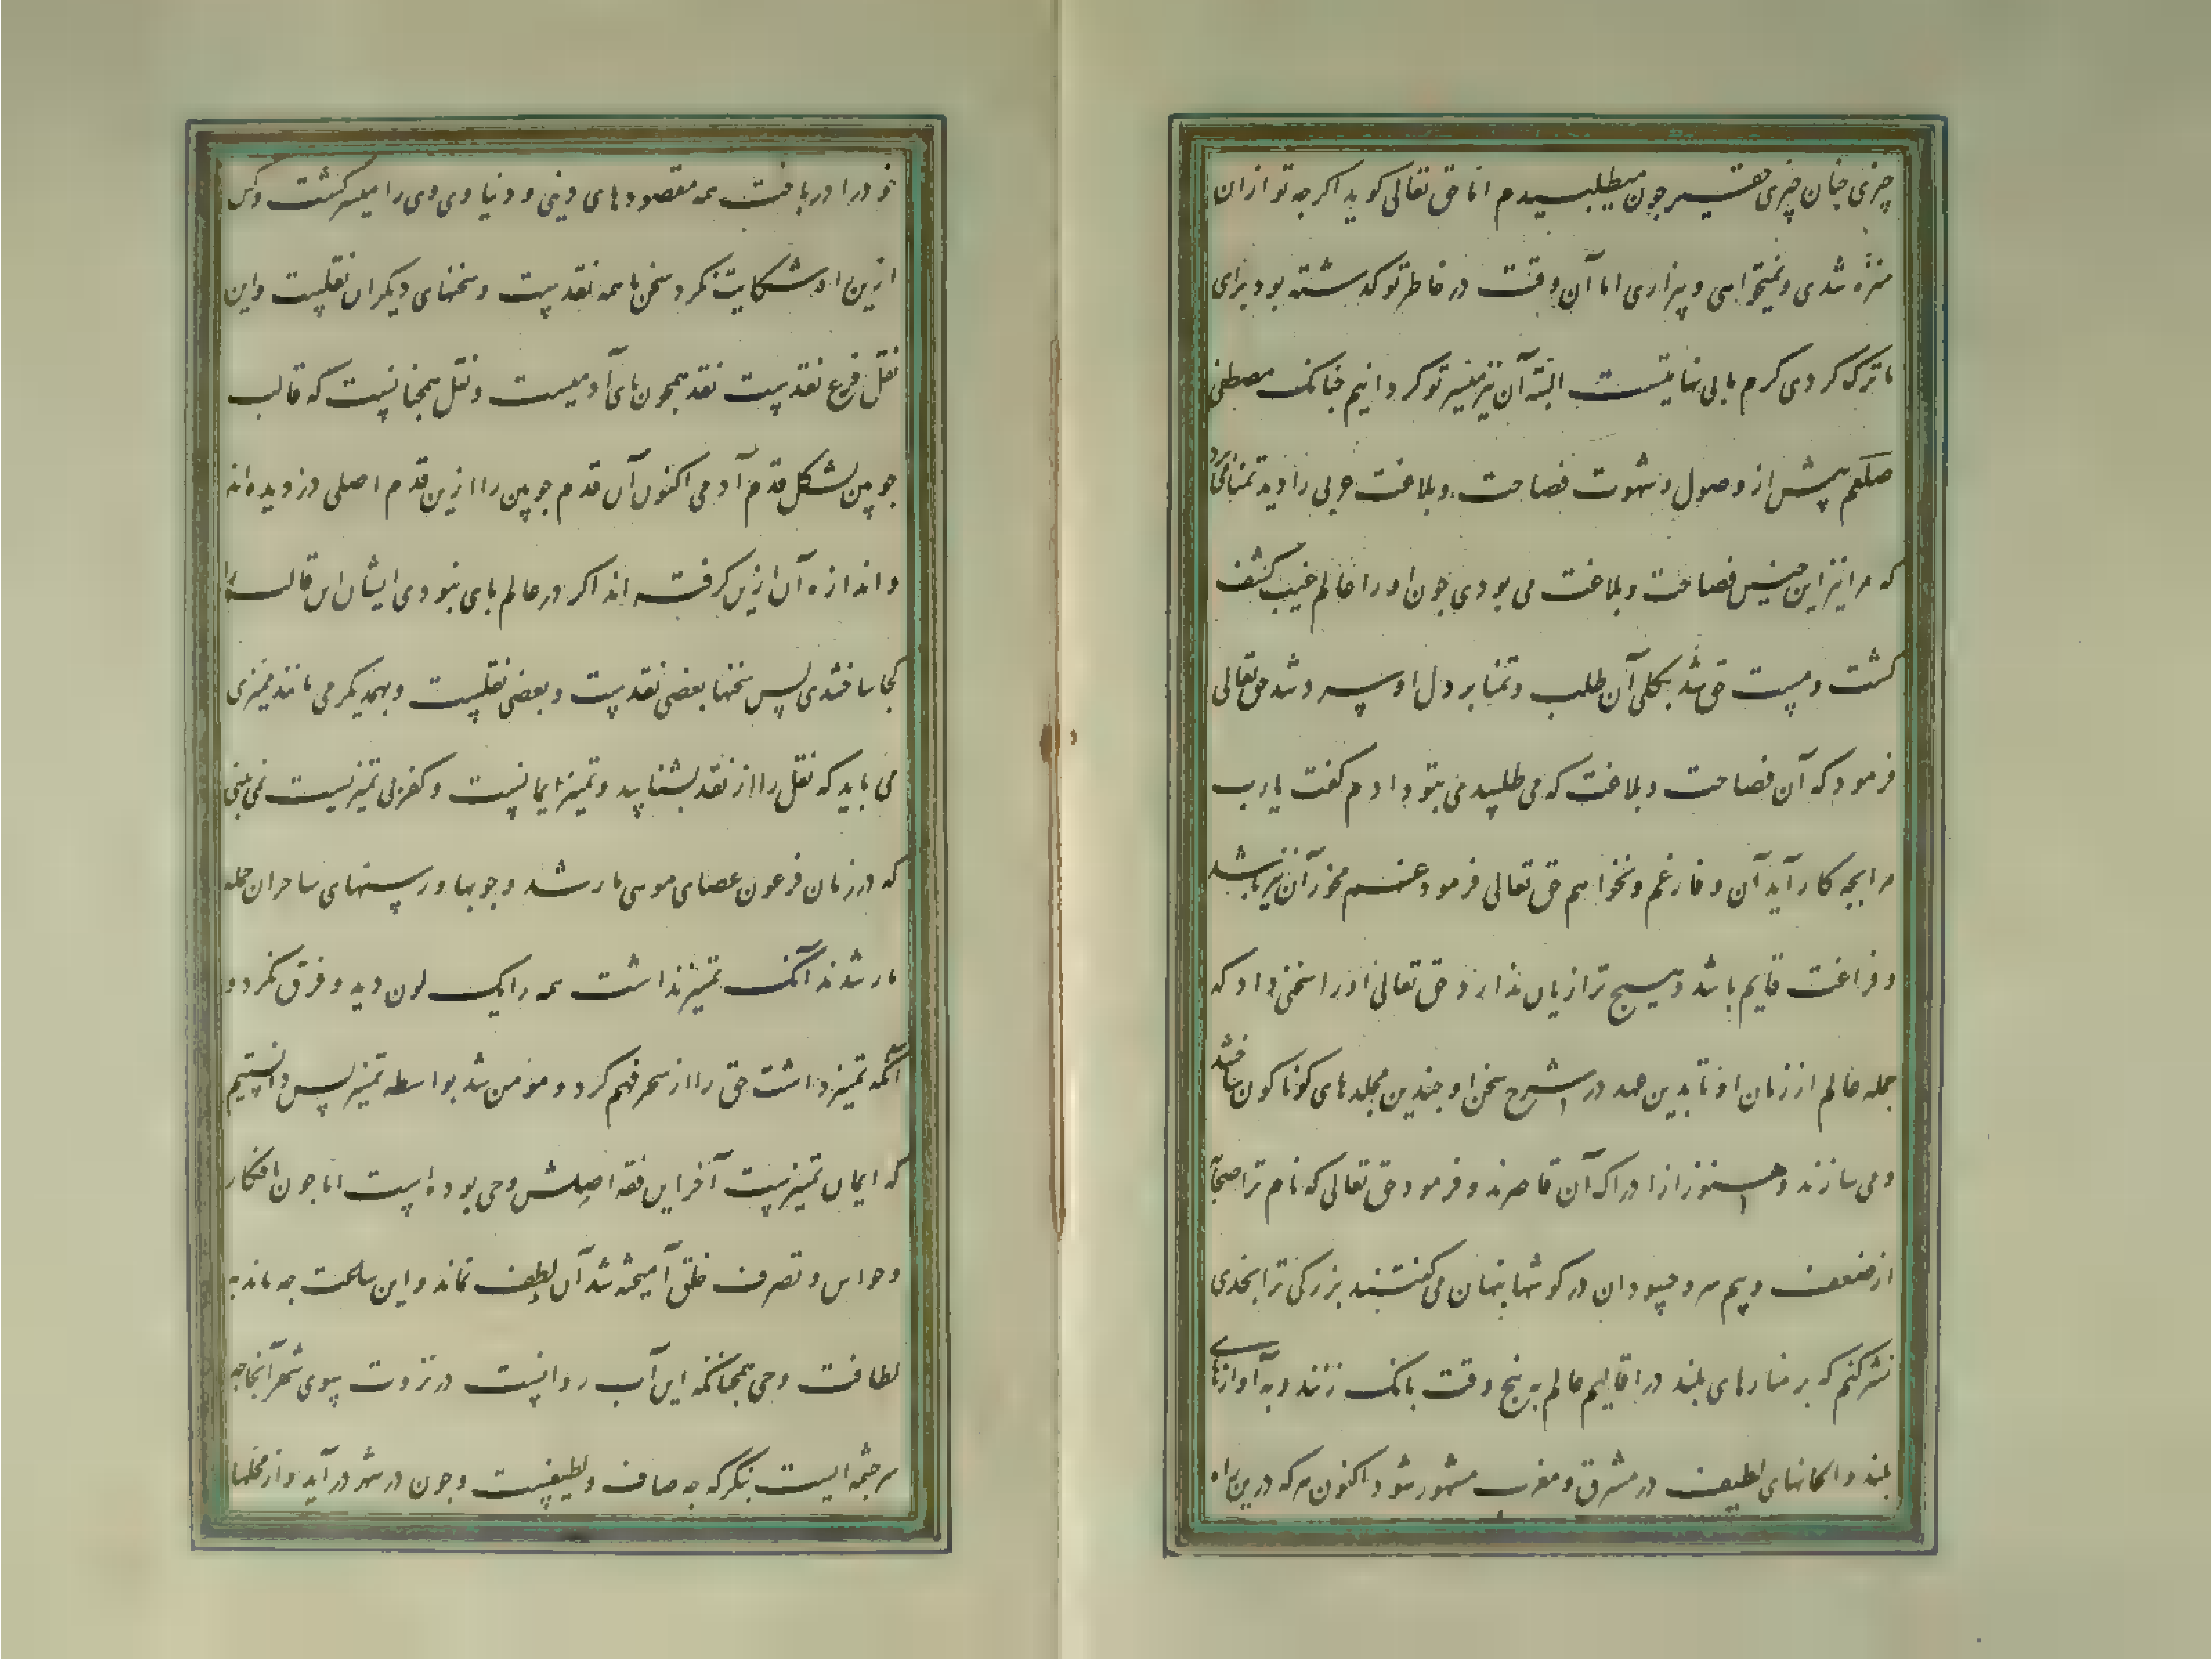 چیزی جنان چیزی حقیر جون میطلبیدم اما حق تعالی کوید اکر جه تو ازان
منزه شدی و نمیخواهی و بیزاری اما آن وقت در خاطر تو کدشته بود برای
ما ترک کردی کرم ما بی نهایتست البته آن نیز میسر تو کردانیم جنانک مصطفی
صلعم پیش از وصول و شهرت فصاحت و بلاغت عرب را دید تمنا می برد
که مرا نیز این جنس فصاحت و بلاغت می بودی جون او را عالم غیب کشف
کشت و مست حق شد بکلی آن طلب و تمنا بر دل او سرد شد حق تعالی
فرمود که آن فصاحت و بلاغت که می طلبیدی بتو دادم کفت یا رب
مرا بجه کار آید آن و فارغم و نخواهم حق تعالی فرمود غم مخور آن نیز باشد
و فراغت قایم باشد و هیچ ترا زیان ندارد حق تعالی او را سخنی داد که
جمله عالم از زمان او تا بدین عهد در شرح سخن او جندین مجلدهای کوناکون ساختند
و می سازند و هنوز از ادراک آن قاصرند و فرمود حق تعالی که نام ترا صحابه
از ضعف و بیم سر و حسودان در کوشها پنهان می کفتند بزرکی ترا بحدی
نشر کنم که بر منارهای بلند در اقالیم عالم به پنج وقت بانک زنند و به آوازهای
بلند و الحانهای لطیف در مشرق و مغرب مشهور شود اکنون هر که درین راه
خود را در باخت همه مقصودهای دینی و دنیاوی وی را میسر کشت و کس
ازین راه شکایت نکرد سخن ما همه نقدست و سخنهای دیکران نقلیست و این
نقل فرع نقدست نقد همجون پای آدمیست و نقل همجنانست که قالب
جوبین بشکل قدم آدمی اکنون آن قدم جوبین را ازین قدم اصلی دزدیده اند
و اندازه آن ازین کرفته اند اکر در عالم پای نبودی ایشان این قالب را
کجا ساختندی پس سخنها بعضی نقدست و بعضی نقلیست و بهمدیکر می مانند ممیزی
می باید که نقل را از نقد بشناسد و تمییز ایمانست و کفر بی تمییزیست نمی بینی
که در زمان فرعون عصای موسی مار شد و جوبها و رسنهای ساحران جمله
مار شدند آنک تمییز نداشت همه را یک لون دید و فرق نکرد و
آنکه تمییز داشت حق را از سحر فهم کرد و مومن شد بواسطه تمییز پس دانستیم
که ایمان تمییزست آخر این فقه اصلش وحی بوده است اما جون بافکار
و حواس و تصرف خلق آمیخته شد آن لطف نماند و این ساعت جه ماند به
لطافت وحی همجنانکه این آب روانست در تروت سوی شهر آنجا جه
سرجشمه ایست بنکر که جه صاف و لطیفست و جون در شهر درآید و از محلها